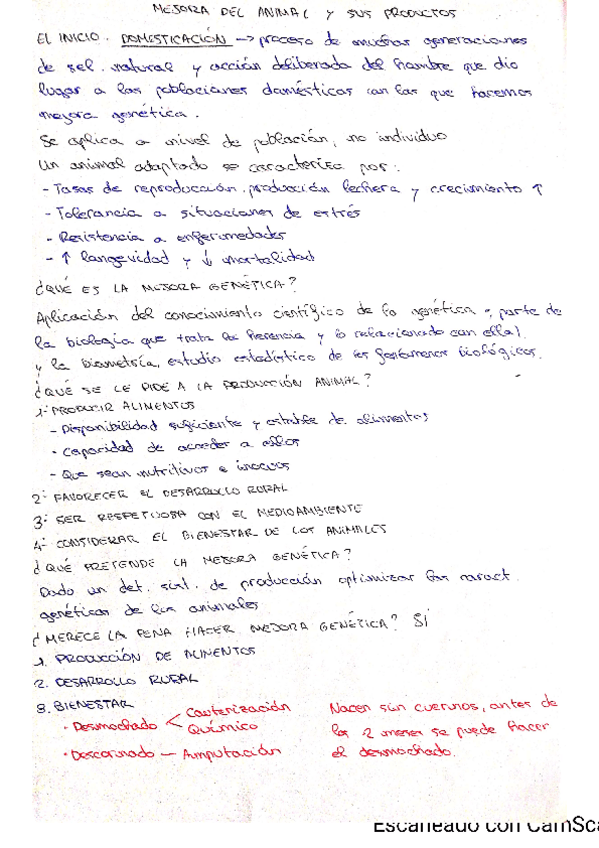 MEJORA DEL ANIMAL Y SUS PRODUCTOS
EL INICIO. DOMESTICACIÓN → proceso de muchas generaciones
de sel. natural y acción deliberada del hombre que dio
lugar a las poblaciones domésticas con las que hacemos
mejora genética.
Se aplica a nivel de población, no individuo
Un animal adaptado se caracteriza por:
- Tasas de reproducción, producción lechera y crecimiento ↑
- Tolerancia a situaciones de estrés
- Resistencia a enfermedades
- ↑ longevidad y ↓ mortalidad
¿QUÉ ES LA MEJORA GENÉTICA?
Aplicación del conocimiento científico de la genética, parte de
la biología que trata la herencia y lo relacionado con ella)
y la biometría, estudio estadístico de los fenómenos biológicos.
¿QUÉ SE LE PIDE A LA PRODUCCIÓN ANIMAL?
1- PRODUCIR ALIMENTOS
- Disponibilidad suficiente y estable de alimentos
- Capacidad de acceder a ellos
- Que sean nutritivos e inocuos
2- FAVORECER EL DESARROLLO RURAL
3- SER RESPETUOSA CON EL MEDIOAMBIENTE
4- CONSIDERAR EL BIENESTAR DE LOS ANIMALES
¿QUÉ PRETENDE LA MEJORA GENÉTICA?
Dado un det. sist. de producción optimizar las caract.
genéticas de los animales
¿MERECE LA PENA HACER MEJORA GENÉTICA? SÍ
1. PRODUCCIÓN DE ALIMENTOS
2. DESARROLLO RURAL
3. BIENESTAR
· Desmochado < Cauterización
Químico
· Descornado — Amputación
Nacen sin cuernos, antes de
los 2 meses se puede hacer
el desmochado.
Escaneado con CamSca